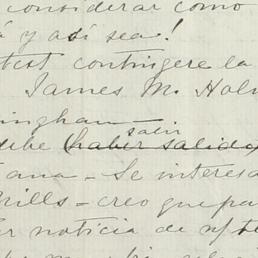 considerar como
y así sea!
contingere la
James M. Hol
ingham
salir
(haber salido)
ana - Se interesa
ills - creo que pa
noticia de